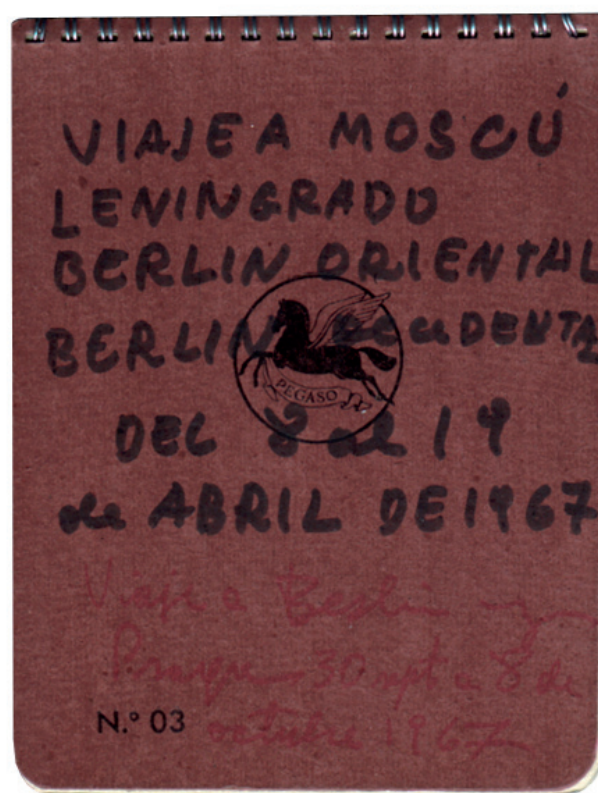 VIAJE A MOSCÚ
LENINGRADO
BERLIN ORIENTAL
BERLIN OccIDENTAL
PEGASO
DEL 8 al 19
de ABRIL DE 1967
Viaje a Berlin y
30 sept a 8 de
N.º 03 octubre 1967